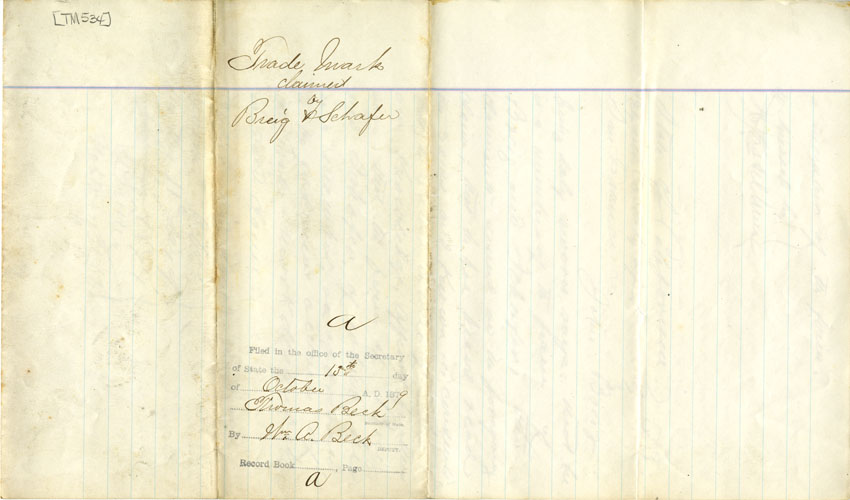 [TM534]
Trade Mark
claimed
by
Breig & Schafer
a
Filed in the office of the Secretary
of State the 15th day
of October A. D. 1879
Thomas Beck
By Wm A. Beck
DEPUTY.
Record Book , Page
a